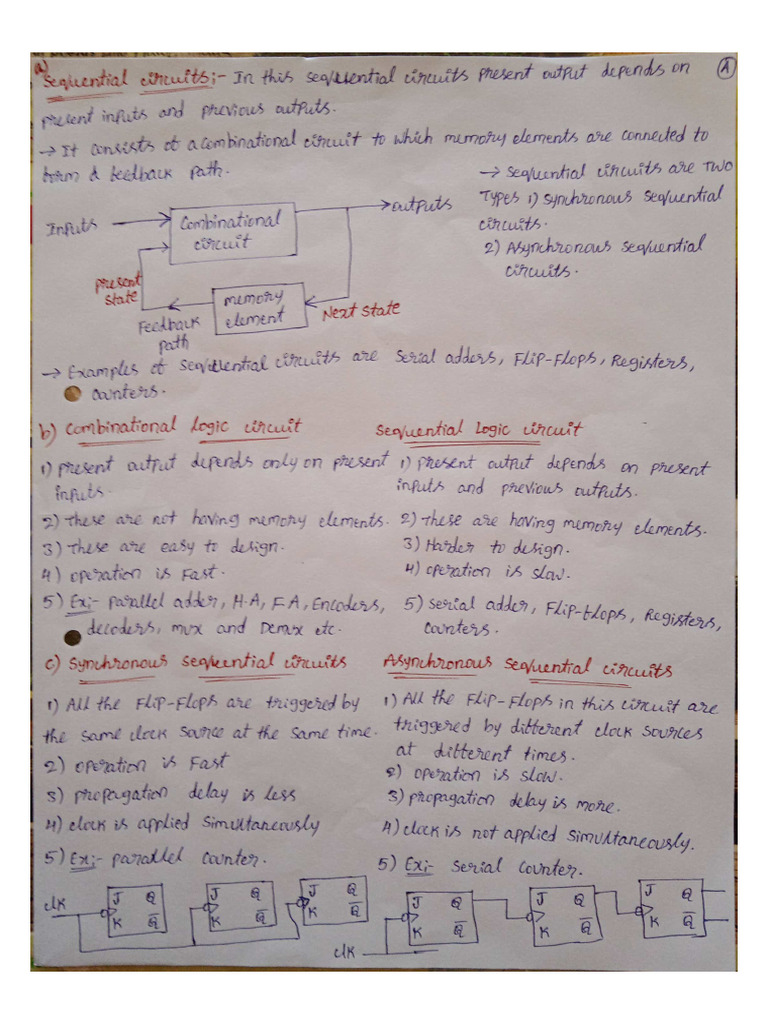 a) Sequential circuits:- In this sequential circuits present output depends on
A
present inputs and previous outputs.
→ It consists of a combinational circuit to which memory elements are connected to
form a feedback path.
→ Sequential circuits are Two
Types 1) Synchronous Sequential
circuits.
2) Asynchronous Sequential
circuits.
Inputs
Combinational
circuit
outputs
present
state
memory
element
Next State
Feedback
path
→ Examples of Sequential circuits are Serial adders, Flip-Flops, Registers,
counters.
b) Combinational Logic circuit
1) present output depends only on present
inputs.
2) These are not having memory elements.
3) These are easy to design.
4) operation is Fast.
5) Ex:- parallel adder, H.A, F.A, Encoders,
decoders, mux and Demux etc.
Sequential Logic circuit
1) present output depends on present
inputs and previous outputs.
2) These are having memory elements.
3) Harder to design.
4) operation is slow.
5) Serial adder, Flip-flops, Registers,
counters.
c) Synchronous Sequential circuits
1) All the Flip-Flops are triggered by
the same clock source at the same time.
2) operation is Fast
3) propagation delay is less
4) clock is applied simultaneously
5) Ex:- parallel counter.
Asynchronous Sequential circuits
1) All the Flip-Flops in this circuit are
triggered by different clock sources
at different times.
2) operation is slow.
3) propagation delay is more.
4) clock is not applied simultaneously.
5) Ex:- Serial counter.
clk
J Q
K Q̅
J Q
K Q̅
J Q
K Q̅
clk
J Q
K Q̅
J Q
K Q̅
J Q
K Q̅